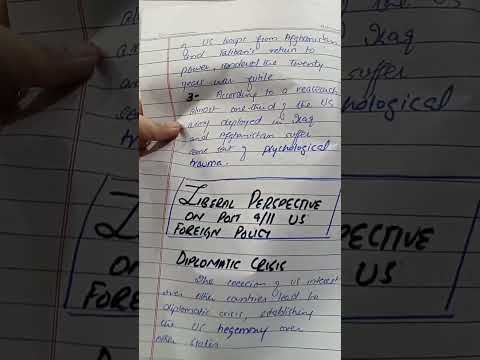 of US troops from Afghanistan
and Taliban's return to
power rendered the twenty
years war futile
3- According to a research
almost one third of the US
army deployed in Iraq
and Afghanistan suffer
some sort of psychological
trauma.
LIBERAL PERSPECTIVE
ON POST 9/11 US
FOREIGN POLICY
DIPLOMATIC CRISIS
The coercion of US interest
over other countries lead to
diplomatic crisis, establishing
US hegemony over
other states